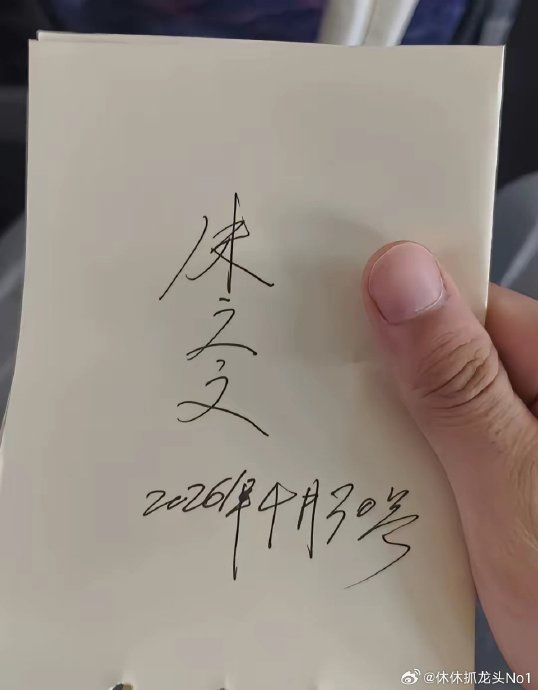 朱之文
2026年4月30号
@休休抓龙头No1